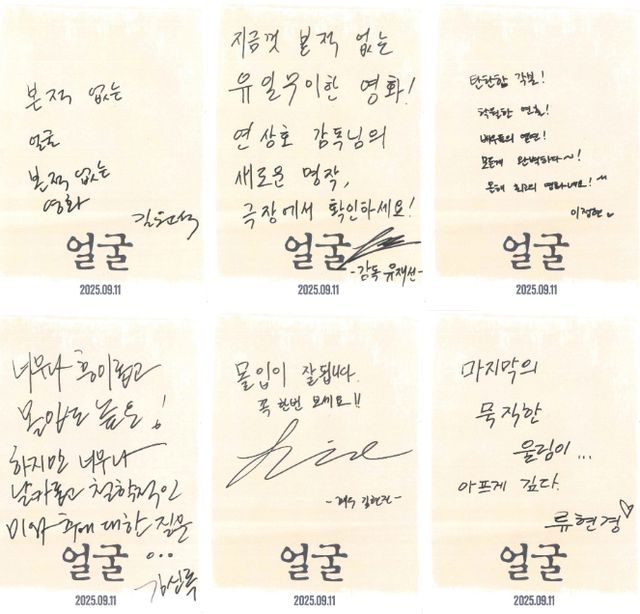 본적 없는
얼굴
본적 없는
영화
김현석
얼굴
2025.09.11
지금껏 본 적 없는
유일무이한 영화!
연상호 감독님의
새로운 명작,
극장에서 확인하세요!
-감독 유재선-
얼굴
2025.09.11
탄탄한 각본!
탁월한 연출!
배우들의 열연!
모든게 완벽하다~!
올해 최고의 영화네요!
이정현
얼굴
2025.09.11
너무나 흥미롭고
몰입도 높은!
하지만 너무나
날카롭고 철학적인
미와 추에 대한 질문
...
김신록
얼굴
2025.09.11
몰입이 잘됩니다.
꼭 한번 보세요!!
-배우 김현진-
얼굴
2025.09.11
마지막의
묵직한
울림이...
아프게 깊다.
류현경
얼굴
2025.09.11